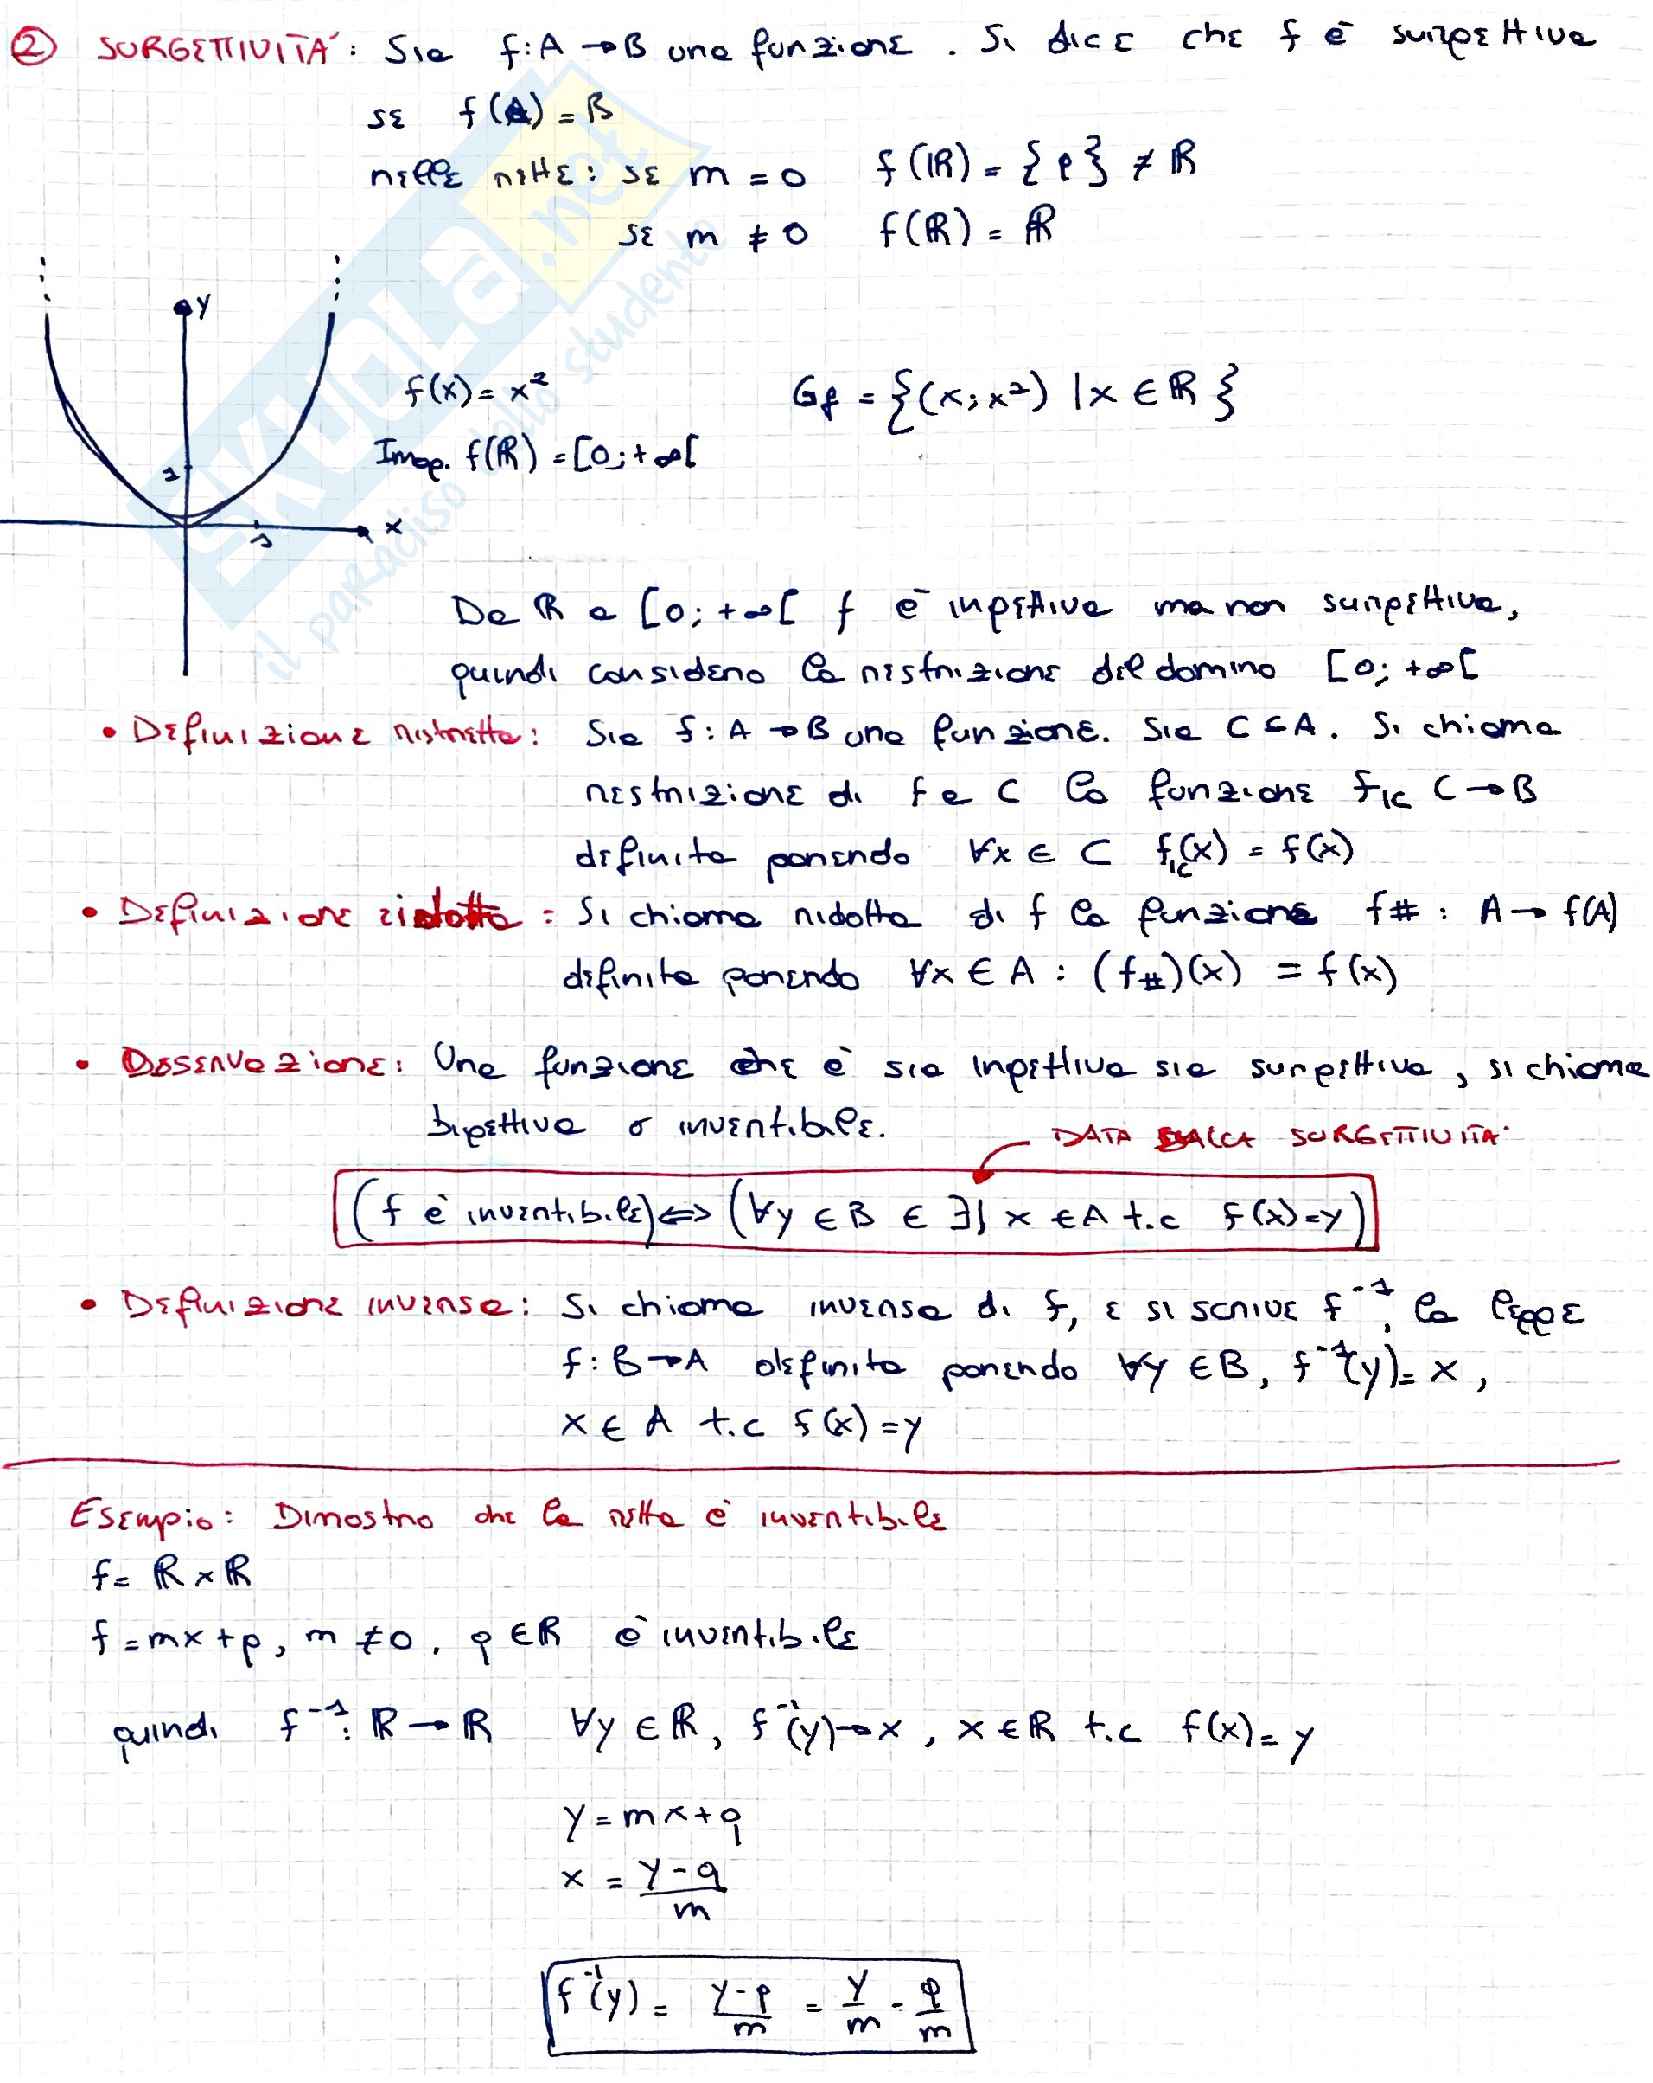 ② SURGETTIVITÀ: Sia f: A → B una funzione. Si dice che f è surgettiva
se f(A) = B
nelle rette: se m = 0 f(ℝ) = {q} ≠ ℝ
se m ≠ 0 f(ℝ) = ℝ
y
f(x) = x² Gf = {(x; x²) | x ∈ ℝ}
Imag. f(ℝ) = [0; +∞[
2
x
1
Da ℝ a [0; +∞[ f è ingettiva ma non surgettiva,
quindi considero la restrizione del domino [0; +∞[
• Definizione ristretta: Sia f: A → B una funzione. Sia C ⊆ A. Si chiama
restrizione di f a C la funzione f|C C → B
definita ponendo ∀x ∈ C f|C(x) = f(x)
• Definizione ridotta: Si chiama ridotta di f la funzione f# : A → f(A)
definita ponendo ∀x ∈ A : (f#)(x) = f(x)
• Osservazione: Una funzione che è sia ingettiva sia surgettiva, si chiama
bigettiva o invertibile.
DATA DALLA SURGETTIVITÀ
(f è invertibile) ⇔ (∀y ∈ B ∈ ∃| x ∈ A t.c f(x) = y)
• Definizione inversa: Si chiama inversa di f, e si scrive f⁻¹, la legge
f: B → A definita ponendo ∀y ∈ B, f⁻¹(y) = x,
x ∈ A t.c f(x) = y
Esempio: Dimostro che la retta è invertibile
f = ℝ × ℝ
f = mx + q, m ≠ 0, q ∈ ℝ è invertibile
quindi f⁻¹: ℝ → ℝ ∀y ∈ ℝ, f⁻¹(y) → x, x ∈ ℝ t.c f(x) = y
y = mx + q
x = (y - q)/m
f⁻¹(y) = (y - q)/m = y/m - q/m
SKUOLA.net
il paradiso dello studente